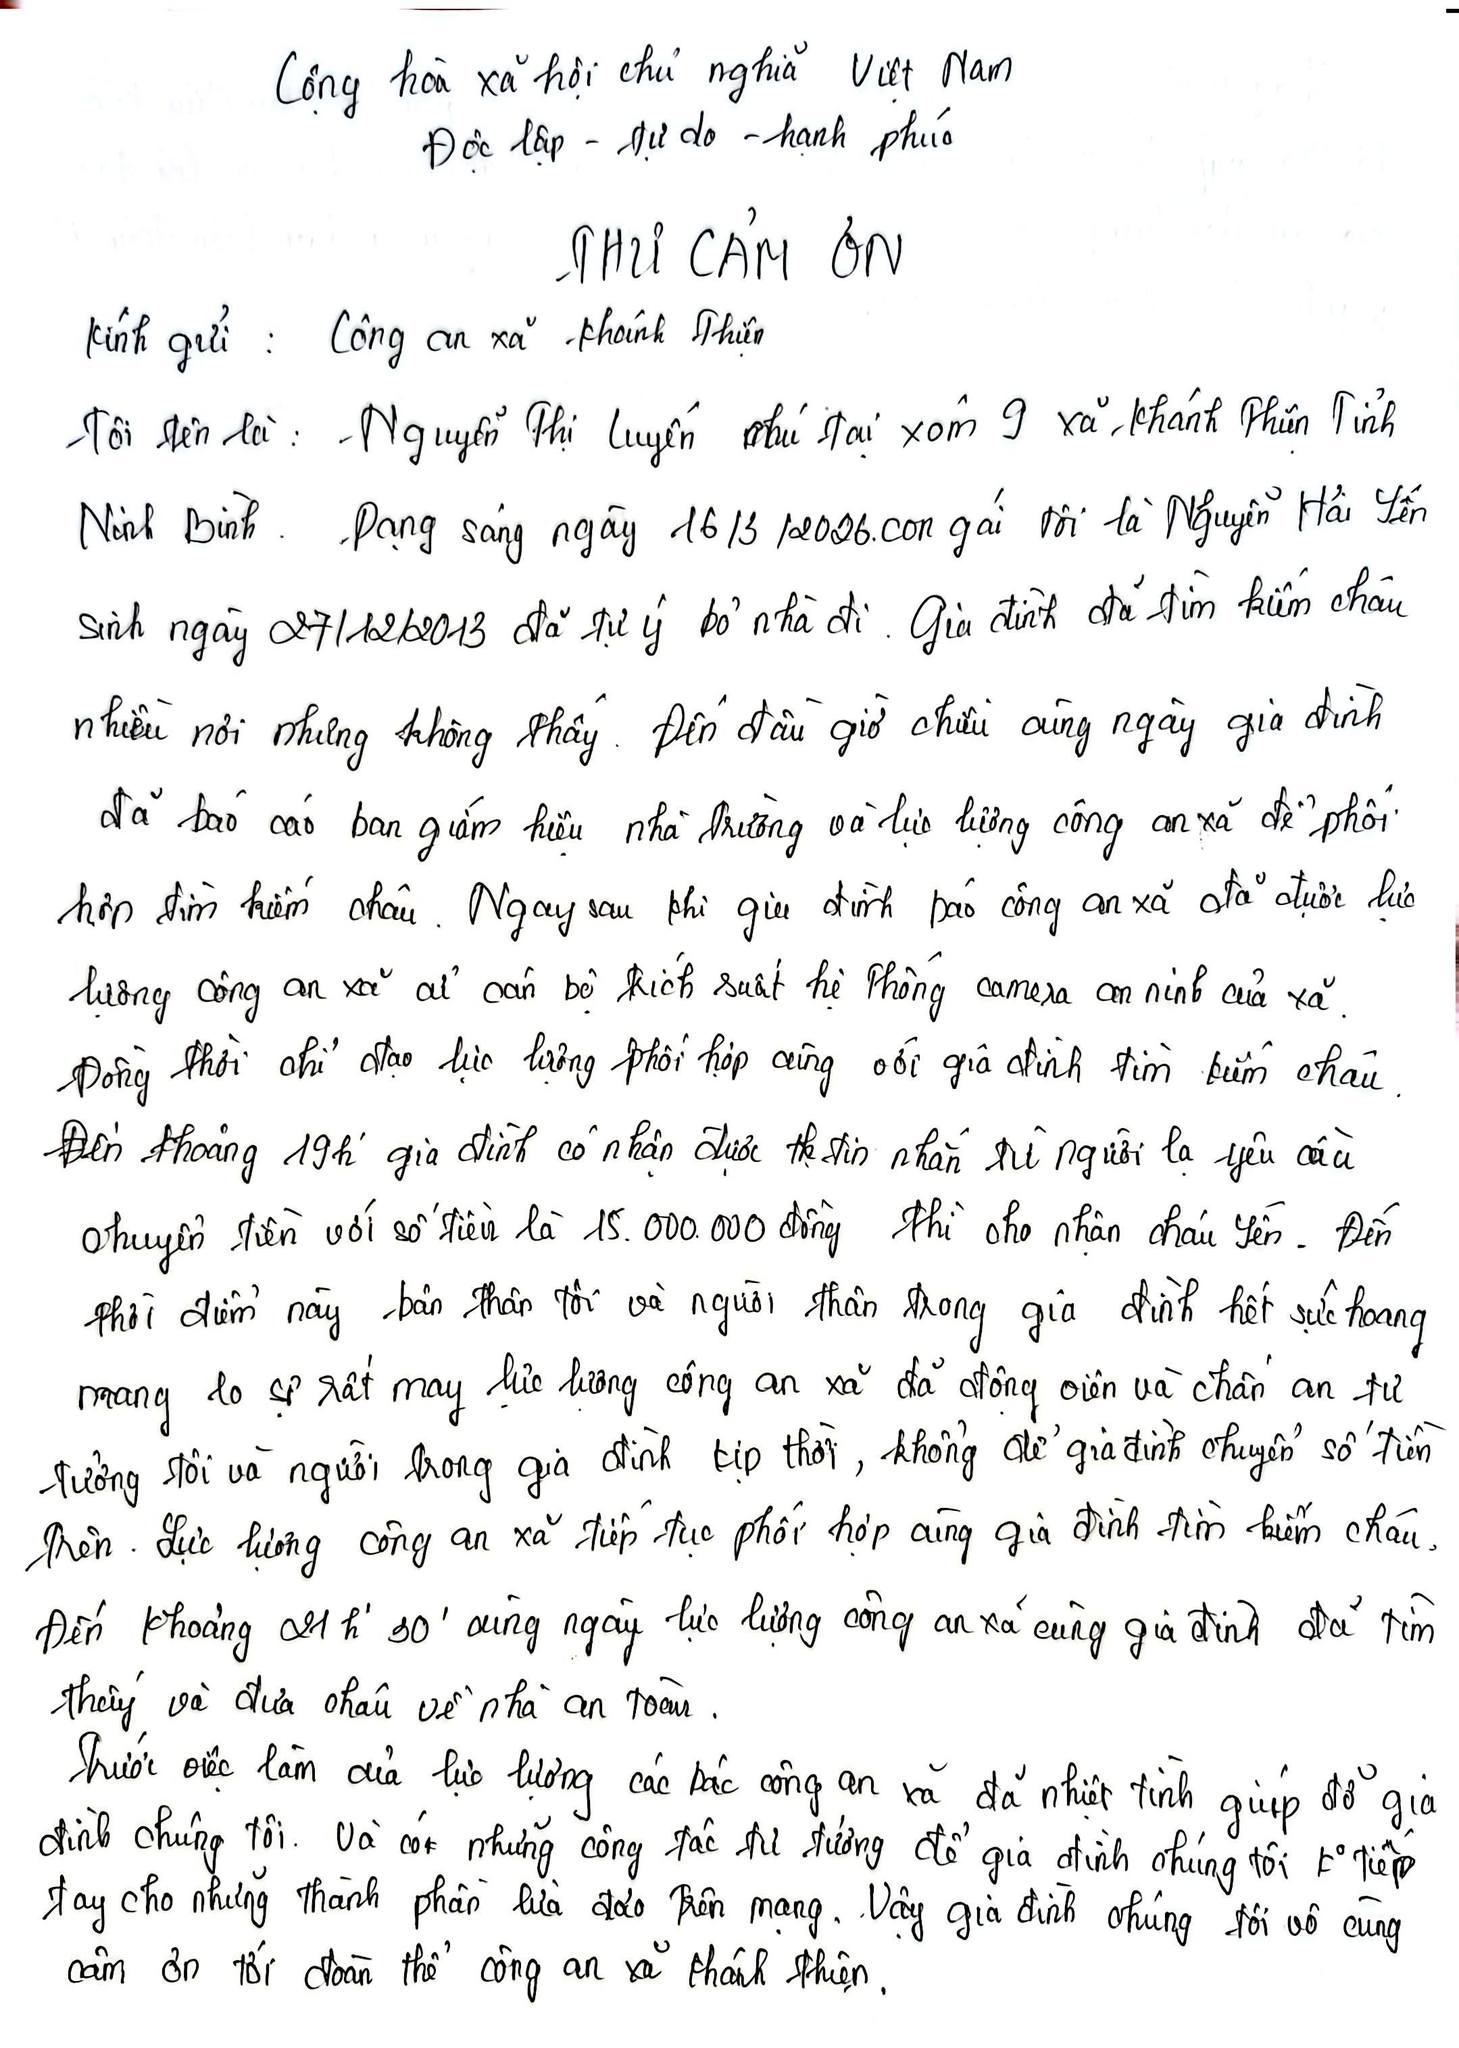 Cộng hoà xã hội chủ nghĩa Việt Nam
Độc lập - tự do - hạnh phúc
THƯ CẢM ƠN
Kính gửi : Công an xã Khánh Thiện
Tôi tên là : Nguyễn Thị Luyến trú tại xóm 9 xã Khánh Thiện Tỉnh
Ninh Bình . Rạng sáng ngày 16/3/2026. con gái tôi là Nguyễn Hải Yến
Sinh ngày 27/12/2013 đã tự ý bỏ nhà đi . Gia đình đã tìm kiếm cháu
nhiều nơi nhưng không thấy . Đến đầu giờ chiều cùng ngày gia đình
đã báo cáo ban giám hiệu nhà trường và lực lượng công an xã để phối
hợp tìm kiếm cháu . Ngay sau khi gia đình báo công an xã đã được lực
lượng công an xã cử cán bộ trích suất hệ thống camera an ninh của xã .
Đồng thời chỉ đạo lực lượng phối hợp cùng với gia đình tìm kiếm cháu .
Đến khoảng 19h' gia đình có nhận được tin nhắn từ người lạ yêu cầu
chuyển tiền với số tiền là 15.000.000 đồng thì cho nhận cháu Yến . Đến
thời điểm này bản thân tôi và người thân trong gia đình hết sức hoang
mang lo sợ rất may lực lượng công an xã đã động viên và chấn an tư
tưởng tôi và người trong gia đình kịp thời , không để gia đình chuyển số tiền
trên . Lực lượng công an xã tiếp tục phối hợp cùng gia đình tìm kiếm cháu .
Đến khoảng 21h' 30' cùng ngày lực lượng công an xã cùng gia đình đã tìm
thấy và đưa cháu về nhà an toàn .
Trước việc làm của lực lượng các bác công an xã đã nhiệt tình giúp đỡ gia
đình chúng tôi . Và có những công tác tư tưởng để gia đình chúng tôi k° tiếp
tay cho những thành phần lừa đảo trên mạng . Vậy gia đình chúng tôi vô cùng
cảm ơn tới đoàn thể công an xã Khánh Thiện .